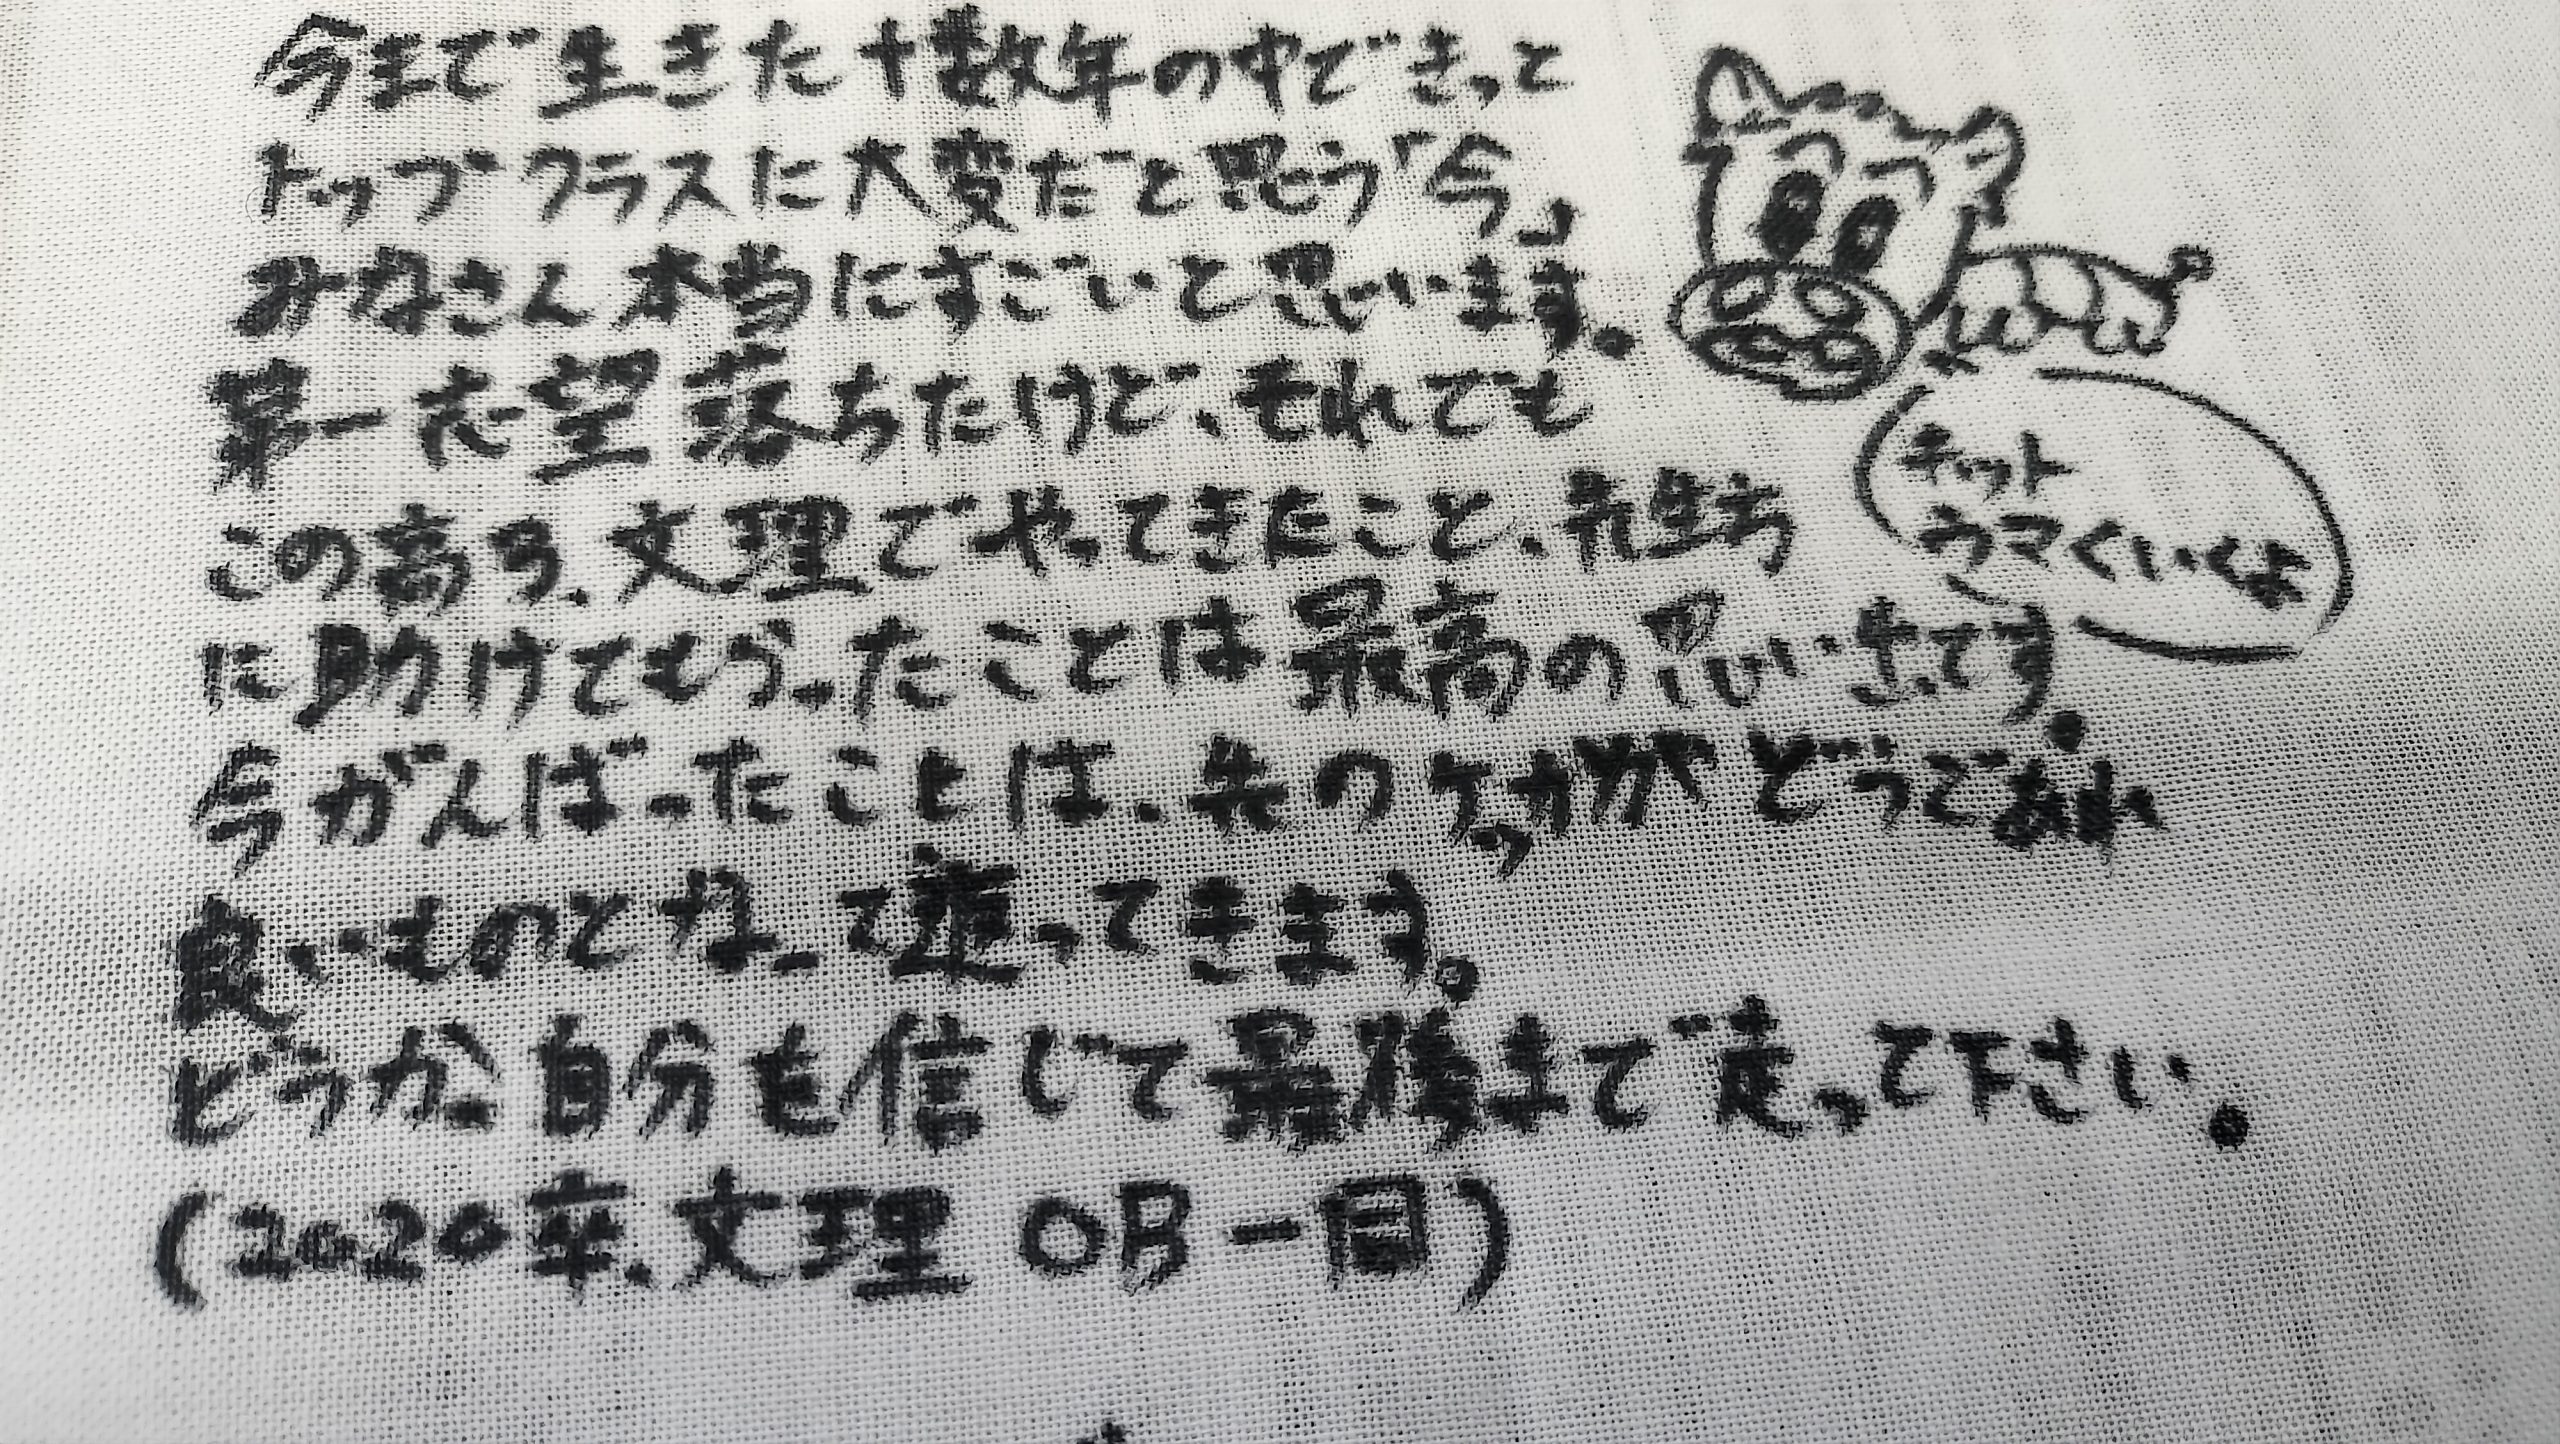 今まで生きた十数年の中できっと
トップクラスに大変だと思う「今」
みなさん本当にすごいと思います。
第一志望落ちたけど、それでも
この高3、文理でやってきたこと、先生方
に助けてもらったことは最高の思い出です。
今がんばったことは、先のケッカがどうであれ
良いものとなって還ってきます。
どうか、自分を信じて最後まで走って下さい。
(2020卒、文理 OB一同)
キット
ウマくいくよ